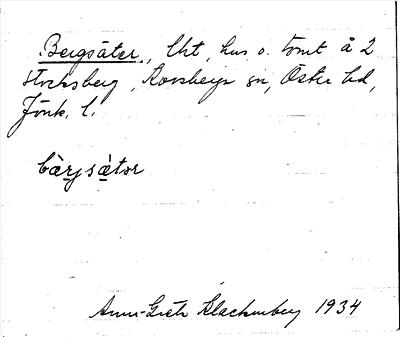 Bergsäter, lht, hus o. tomt å 2
Stocksberg, Korsberga sn, Östra hd,
Jönk. l.
bæ̀rjsä̀tər
Anna-Greta Klackenberg 1934